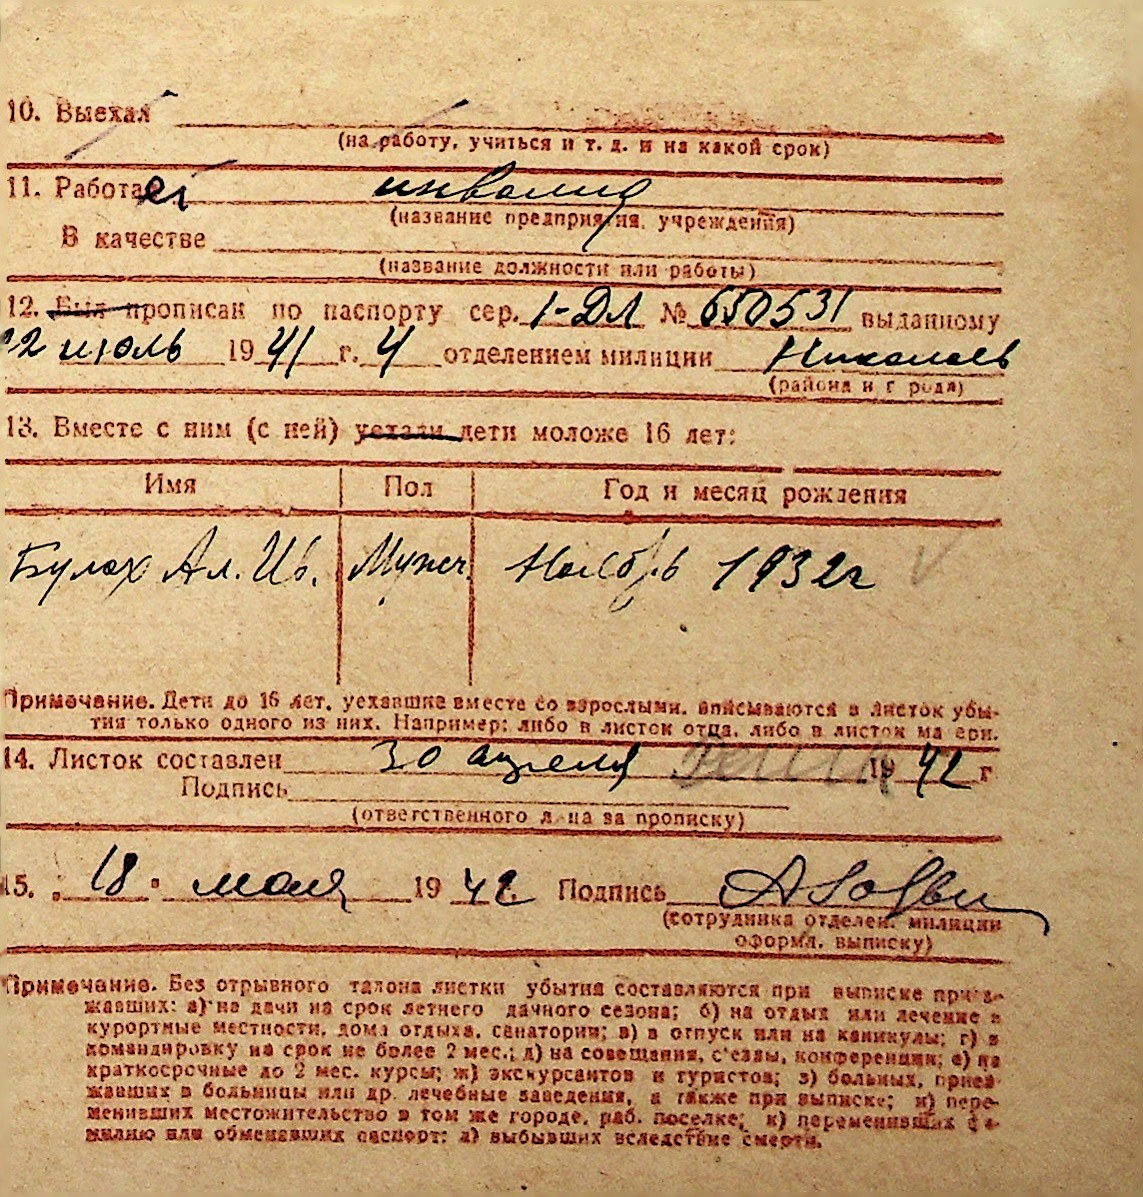 10. Выехал
(на работу, учиться и т. д. и на какой срок)
11. Работает инвалид
(название предприятия, учреждения)
В качестве
(название должности или работы)
12. Был прописан по паспорту сер. 1-ДЛ № 650531 выданному
22 июль 1941 г. 4 отделением милиции Николаев
(района и города)
13. Вместе с ним (с ней) уехали дети моложе 16 лет:
Имя Пол Год и месяц рождения
Булах Ал. Ив. Мужч. Ноябрь 1932г
Примечание. Дети до 16 лет, уехавшие вместе со взрослыми, вписываются в листок убы-
тия только одного из них. Например: либо в листок отца, либо в листок матери.
14. Листок составлен 30 апреля 1942 г
Подпись
(ответственного лица за прописку)
15. „18" мая 1942 Подпись
(сотрудника отделен. милиции
оформл. выписку)
Примечание. Без отрывного талона листки убытия составляются при выписке приез-
жавших: а) на дачи на срок летнего дачного сезона; б) на отдых или лечение в
курортные местности, дома отдыха, санатории; в) в отпуск или на каникулы; г) в
командировку на срок не более 2 мес.; д) на совещания, с'езды, конференции; е) на
краткосрочные до 2 мес. курсы; ж) экскурсантов и туристов; з) больных, приез-
жавших в больницы или др. лечебные заведения, а также при выписке; и) пере-
менивших местожительство в том же городе, раб. поселке; к) переменивших фа-
милию или обменявших паспорт; л) выбывших вследствие смерти.